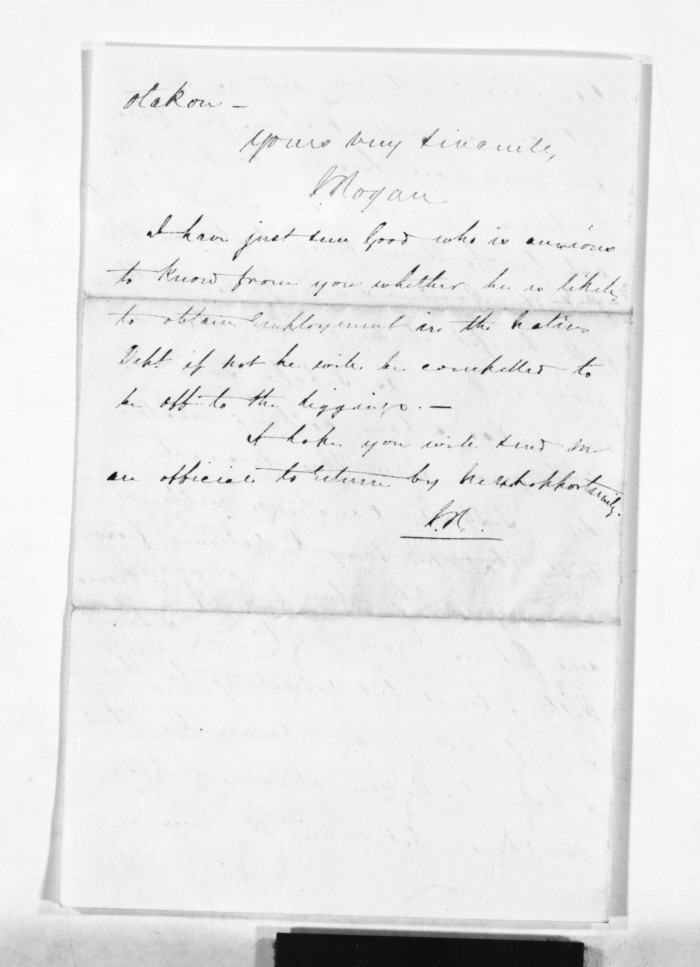 otakou –
Yours very sincerely,
J Rogan
I have just seen Good who is anxious
to know from you whether he is likely
to obtain Employment in the Native
Dept. if not he will be compelled to
be off to the diggings. –
I hope you will send me
an official to return by next opportunity.
J.R.